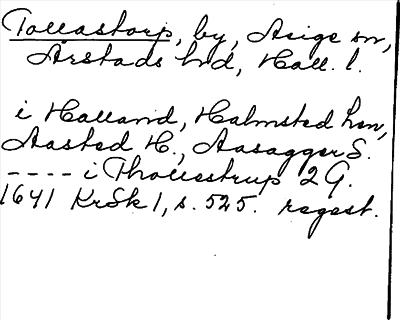 Tollastorp, by, Asige sn,
Årstads hd, Hall. l.
i Halland, Halmsted Len,
Aasted H., Aasagger S.
---- i Thollestrup 2 G.
1641 KrSk 1, s. 525. regest.